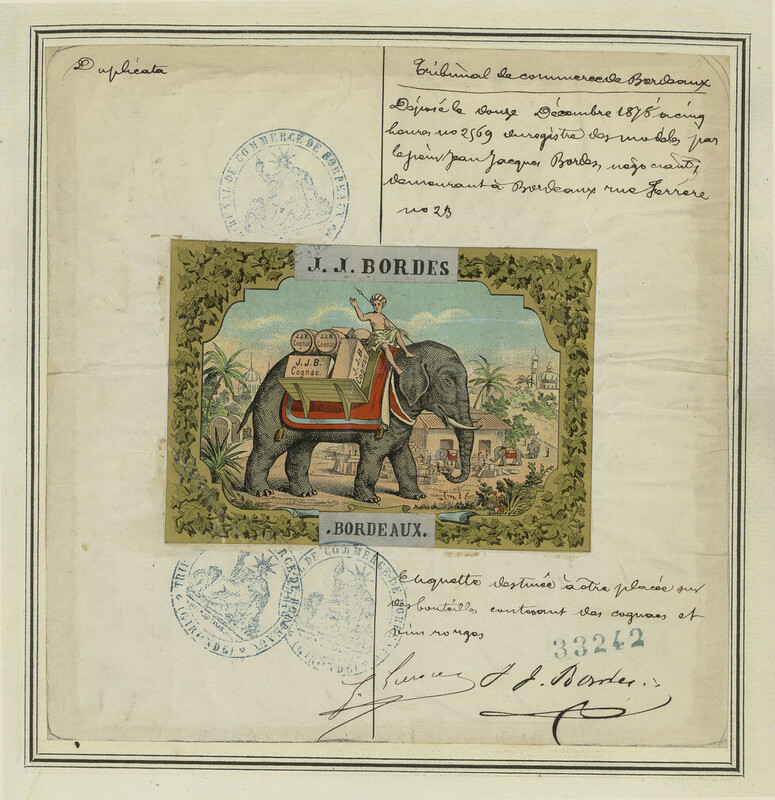 Duplicata
Tribunal de commerce de Bordeaux
Déposé le douze Décembre 1875 à cinq
heures no 2569 enregistré des modèles par
le sieur Jean Jacques Bordes, négociant,
demeurant à Bordeaux rue Ferrère
no 23
TRIBUNAL DE COMMERCE DE BORDEAUX
J. J. BORDES
J.J.B. Cognac
J.J.B. Cognac
J.J.B.
Cognac.
J.J.B.
Cognac
.BORDEAUX.
TRIBUNAL DE COMMERCE DE BORDEAUX
(GIRONDE)
TRIBUNAL DE COMMERCE DE BORDEAUX
(GIRONDE)
Etiquette destinée à être placée sur
des bouteilles contenant des cognacs et
vins rouges
33242
J. J. Bordes